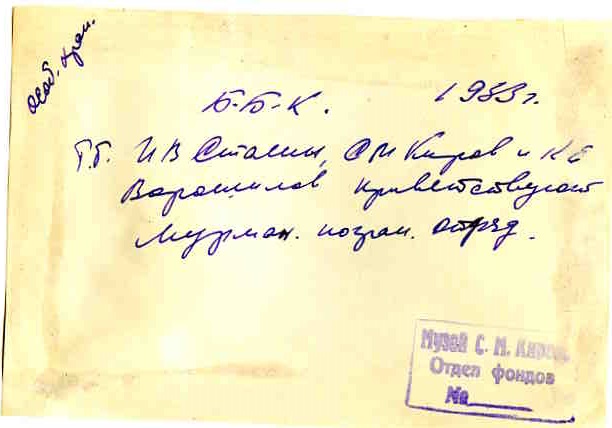 особ. хран.
Б-Б-К. 1933г.
Т.т. И В Сталин, С М Киров и К Е
Ворошилов приветствуют
Мурман. погран. отряд.
Музей С. М. Кирова
Отдел фондов
№